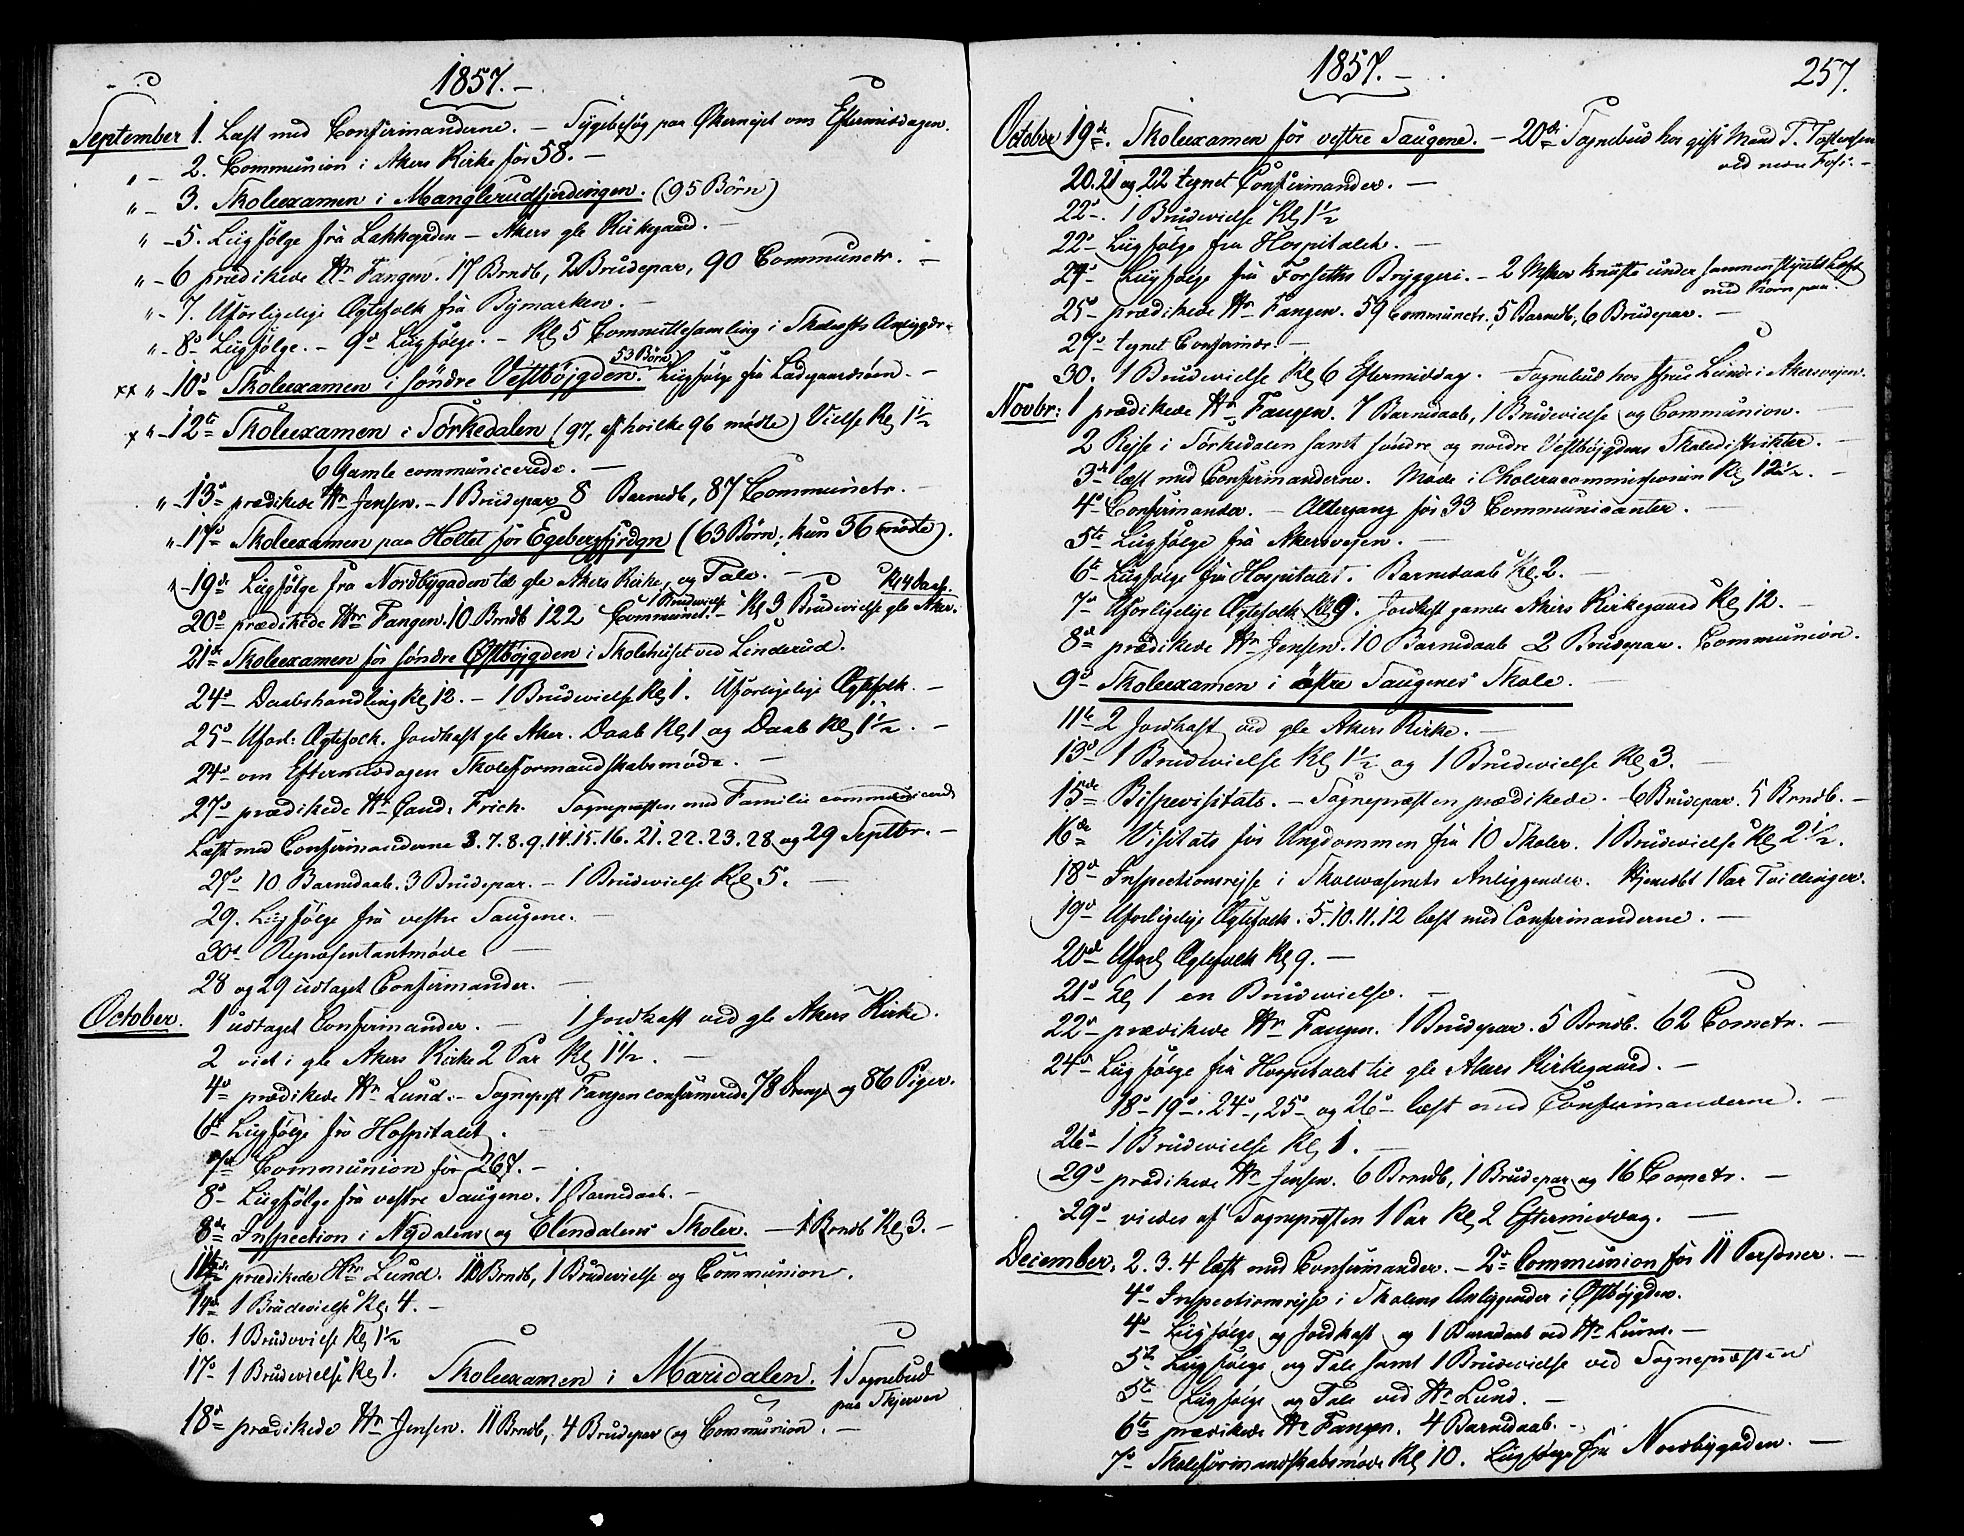 1857.
September 1. Læst med Confirmanderne. – Sygebesøg paa Økernejet om Eftermiddagen.
" – 2. Communion i Akers Kirke for 58. –
" – 3. Skoleexamen i Manglerudfjerdingen. (95 Børn)
" – 5. Liigfølge fra Lakkegaden – Akers gle Kirkegaard. –
" – 6 prædikede Hr Fangen. 17 Brndb, 2 Brudepar, 90 Communctr. –
" – 7. Uforligelige Ægtefolk fra Bymarken. –
" – 8d Liigfølge. – 9d Liigfølge. – Kl 5 Committesamling i
xx " – 10d Skoleexamen i søndre Vestbøjgden. 53 Børn Liigfølge fra Ladegaardsøen. –
x " – 12te Skoleexamen i Sørkedalen (97, af hvilke 96 mødte) Vielse Kl 1½
6 Gamle communicerede. –
" – 13d prædikede Hr Jensen. – 1 Brudepar 8 Barnedb, 87 Communctr. –
" – 17d Skoleexamen paa Holtet for Egebergfjrdgn (63 Børn; kun 36 mødte).
" – 19de Liigfølge fra Nordbygaden til gle Akers Kirke, og Tale. – Kl 4 Daab.
20d prædikede Hr Fangen. 10 Brndb 122 Communct. – 1 Brudevielse Kl 3 Brudevielse gle Aker.
21de Skoleexamen for søndre Østbøjgden i Skolehuset ved Linderud.
24d Daabshandling Kl 12. – 1 Brudevielse Kl 1. Uforligelige Ægtefolk. –
25d Uforl: Ægtefolk. Jordkast gle Aker. Daab Kl 1 og Daab Kl 1½. –
24d om Eftermiddagen Skoleformandskabsmøde. –
27d prædikede Hr Cand. Frich. Sognepræsten med Familie communicerede
Læst med Confirmanderne 3. 7. 8. 9. 14. 15. 16. 21. 22. 23. 28 og 29 Septbr. –
27d 10 Barnedaab. 3 Brudepar. – 1 Brudevielse Kl. 5. –
29. Liigfølge fra vestre Saugene. –
30d Repræsentantmøde –
28 og 29 udtaget Confirmander. –
October. 1 udtaget Confirmander. – 1 Jordkast ved gle Akers Kirke.
2 viet i gle Akers Kirke 2 Par Kl 1½. –
4d prædikede Hr Lund. – Sognepst Fangen confirmerede 78 Drenge og 86 Piger.
6te Liigfølge fra Hospitalet.
7d Communion for 267. –
8d Liigfølge fra vestre Saugene. 1 Barnedaab. –
8de Inspection i Nydalens og Elendalens Skoler. – 1 Brndb Kl. 3. –
11te prædikede Hr Lund. 11 Brndb, 1 Brudevielse og Communion.
14d 1 Brudevielse Kl. 4. –
16. 1 Brudevielse Kl 1½
17d 1 Brudevielse Kl 1. Skoleexamen i Maridalen. 1 Sognebud
paa Skjerven
18d prædikede Hr Jensen. 11 Brndb, 4 Brudepar og Communion. –
1857. –
257.
October 19de. Skoleexamen for vestre Saugene. – 20de Sognebud hos gift Mand T. Tostensen
ved nedre Foss –
20. 21 og 22 tegnet Confirmander. –
22d. 1 Brudevielse Kl 1½
22d Liigfølge fra Hospitalet. –
24d Liigfølge fra Forseths Bryggeri. – 2 Msker knuste under sammenstyrtet Loft
med Korn paa.
25d prædikede Hr Fangen. 59 Communctr, 5 Barnedb, 6 Brudepar. –
27d tegnet Confirmdr. –
30. 1 Brudevielse Kl 6 Eftermiddag. Sognebud hos Frue Lunde i Akersvejen.
Novbr: 1 prædikede Hr Fangen. 7 Barnedaab, 1 Brudevielse og Communion. –
2 Rejse i Sørkedalen samt søndre og nordre Vestbøjgdens Skoledistrikter. –
3de læst med Confirmanderne. Møde i Choleracommissionen Kl 12½. –
4d Confirmander. – Altergang for 33 Communicanter. –
5te Liigfølge fra Akersvejen. –
6te Liigfølge fra Hospitalet. Barnedaab Kl. 2. –
7d Uforligelige Ægtefolk Kl 9. Jordkast gamle Akers Kirkegaard Kl 12. –
8de prædikede Hr Jensen. 10 Barnedaab 2 Brudepar. Communion.
9d Skoleexamen i østre Saugenes Skole. –
11te 2 Jordkast ved gle Akers Kirke. –
13d 1 Brudevielse Kl 1½ og 1 Brudevielse Kl 3. –
15de Bispevisitats. – Sognepræsten prædikede. 6 Brudepar. 5 Brndb. –
16de Visitats for Ungdommen fra 10 Skoler. 1 Brudevielse Kl 2½.
18d Inspectionsrejse i Skolevæsenets Anliggender. Hjemdbt 1 Par Tvillinger.
19d Uforligelige Ægtefolk. 5. 10. 11. 12 læst med Confirmanderne. –
20de Uforl Ægtefolk Kl 9. –
21d Kl 1 en Brudevielse. –
22d prædikede Hr Fangen. 1 Brudepar. 5 Brndb. 62 Cometr. –
24d Liigfølge fra Hospitalet til gle Akers Kirkegaard. –
18d 19d. 24d, 25d og 26d læst med Confirmanderne. –
26d 1 Brudevielse Kl 1. –
29d prædikede Hr Jensen. 6 Brndb, 1 Brudepar og 16 Cometr. –
29d viedes af Sognepræsten 1 Par Kl 2 Eftermiddag. –
December. 2. 3. 4 læst med Confirmander. – 2d Communion for 11 Personer. –
4d Inspectionsrejse i Skolens Anliggender i Østbøjgden.
4d Liigfølge og Jordkast og 1 Barnedaab ved Hr Lund. –
5te Liigfølge og Tale samt 1 Brudevielse ved Sognepræsten
5te Liigfølge og Tale ved Hr Lund. –
6te prædikede Hr Fangen. 4 Barnedaab. –
7d Skoleformandskabsmøde Kl 10. Liigfølge fra Nordbygaden. –